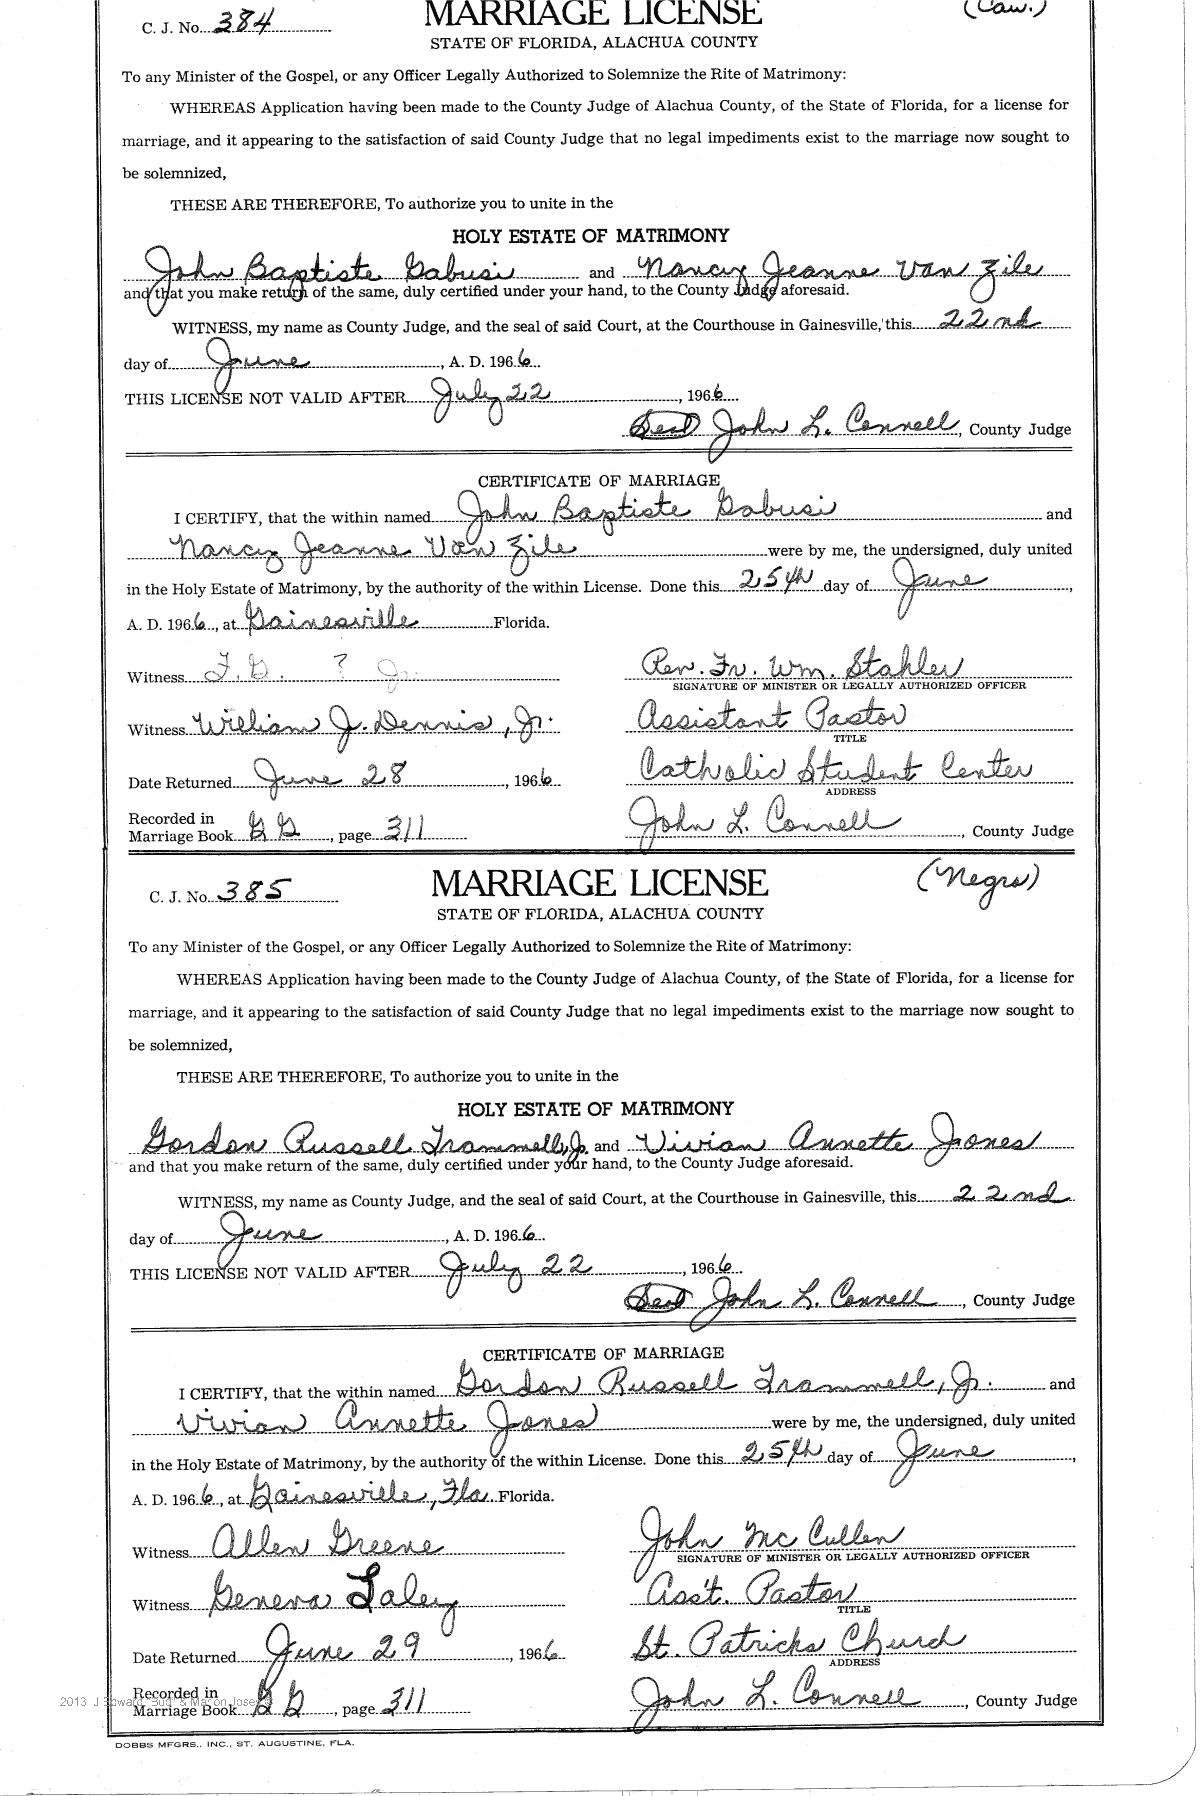 C. J. No. 384 MARRIAGE LICENSE (Cau.)
STATE OF FLORIDA, ALACHUA COUNTY
To any Minister of the Gospel, or any Officer Legally Authorized to Solemnize the Rite of Matrimony:
WHEREAS Application having been made to the County Judge of Alachua County, of the State of Florida, for a license for
marriage, and it appearing to the satisfaction of said County Judge that no legal impediments exist to the marriage now sought to
be solemnized,
THESE ARE THEREFORE, To authorize you to unite in the
HOLY ESTATE OF MATRIMONY
John Baptiste Gabusi and Nancy Jeanne Van Zile
and that you make return of the same, duly certified under your hand, to the County Judge aforesaid.
WITNESS, my name as County Judge, and the seal of said Court, at the Courthouse in Gainesville, this 22nd
day of June, A. D. 1966
THIS LICENSE NOT VALID AFTER July 22, 1966
Seal John L. Connell, County Judge
CERTIFICATE OF MARRIAGE
I CERTIFY, that the within named John Baptiste Gabusi and
Nancy Jeanne Van Zile were by me, the undersigned, duly united
in the Holy Estate of Matrimony, by the authority of the within License. Done this 25th day of June,
A. D. 1966, at Gainesville Florida.
Witness F. G. ? Jr. Rev. Fr. Wm. Stahler
SIGNATURE OF MINISTER OR LEGALLY AUTHORIZED OFFICER
Witness William J. Dennis, Jr. Assistant Pastor
TITLE
Date Returned June 28, 1966 Catholic Student Center
ADDRESS
Recorded in
Marriage Book GG, page 311 John L. Connell, County Judge
C. J. No. 385 MARRIAGE LICENSE (Negro)
STATE OF FLORIDA, ALACHUA COUNTY
To any Minister of the Gospel, or any Officer Legally Authorized to Solemnize the Rite of Matrimony:
WHEREAS Application having been made to the County Judge of Alachua County, of the State of Florida, for a license for
marriage, and it appearing to the satisfaction of said County Judge that no legal impediments exist to the marriage now sought to
be solemnized,
THESE ARE THEREFORE, To authorize you to unite in the
HOLY ESTATE OF MATRIMONY
Gordon Russell Trammell, Jr. and Vivian Annette Jones
and that you make return of the same, duly certified under your hand, to the County Judge aforesaid.
WITNESS, my name as County Judge, and the seal of said Court, at the Courthouse in Gainesville, this 22nd
day of June, A. D. 1966
THIS LICENSE NOT VALID AFTER July 22, 1966
Seal John L. Connell, County Judge
CERTIFICATE OF MARRIAGE
I CERTIFY, that the within named Gordon Russell Trammell, Jr. and
Vivian Annette Jones were by me, the undersigned, duly united
in the Holy Estate of Matrimony, by the authority of the within License. Done this 25th day of June,
A. D. 1966, at Gainesville, Fla. Florida.
Witness Allen Greene John McCullen
SIGNATURE OF MINISTER OR LEGALLY AUTHORIZED OFFICER
Witness Geneva Laley Ass't. Pastor
TITLE
Date Returned June 29, 1966 St. Patricks Church
ADDRESS
Recorded in
Marriage Book GG, page 311 John L. Connell, County Judge
2013 J Edward "Bud" & Marion Josey
DOBBS MFGRS., INC., ST. AUGUSTINE, FLA.